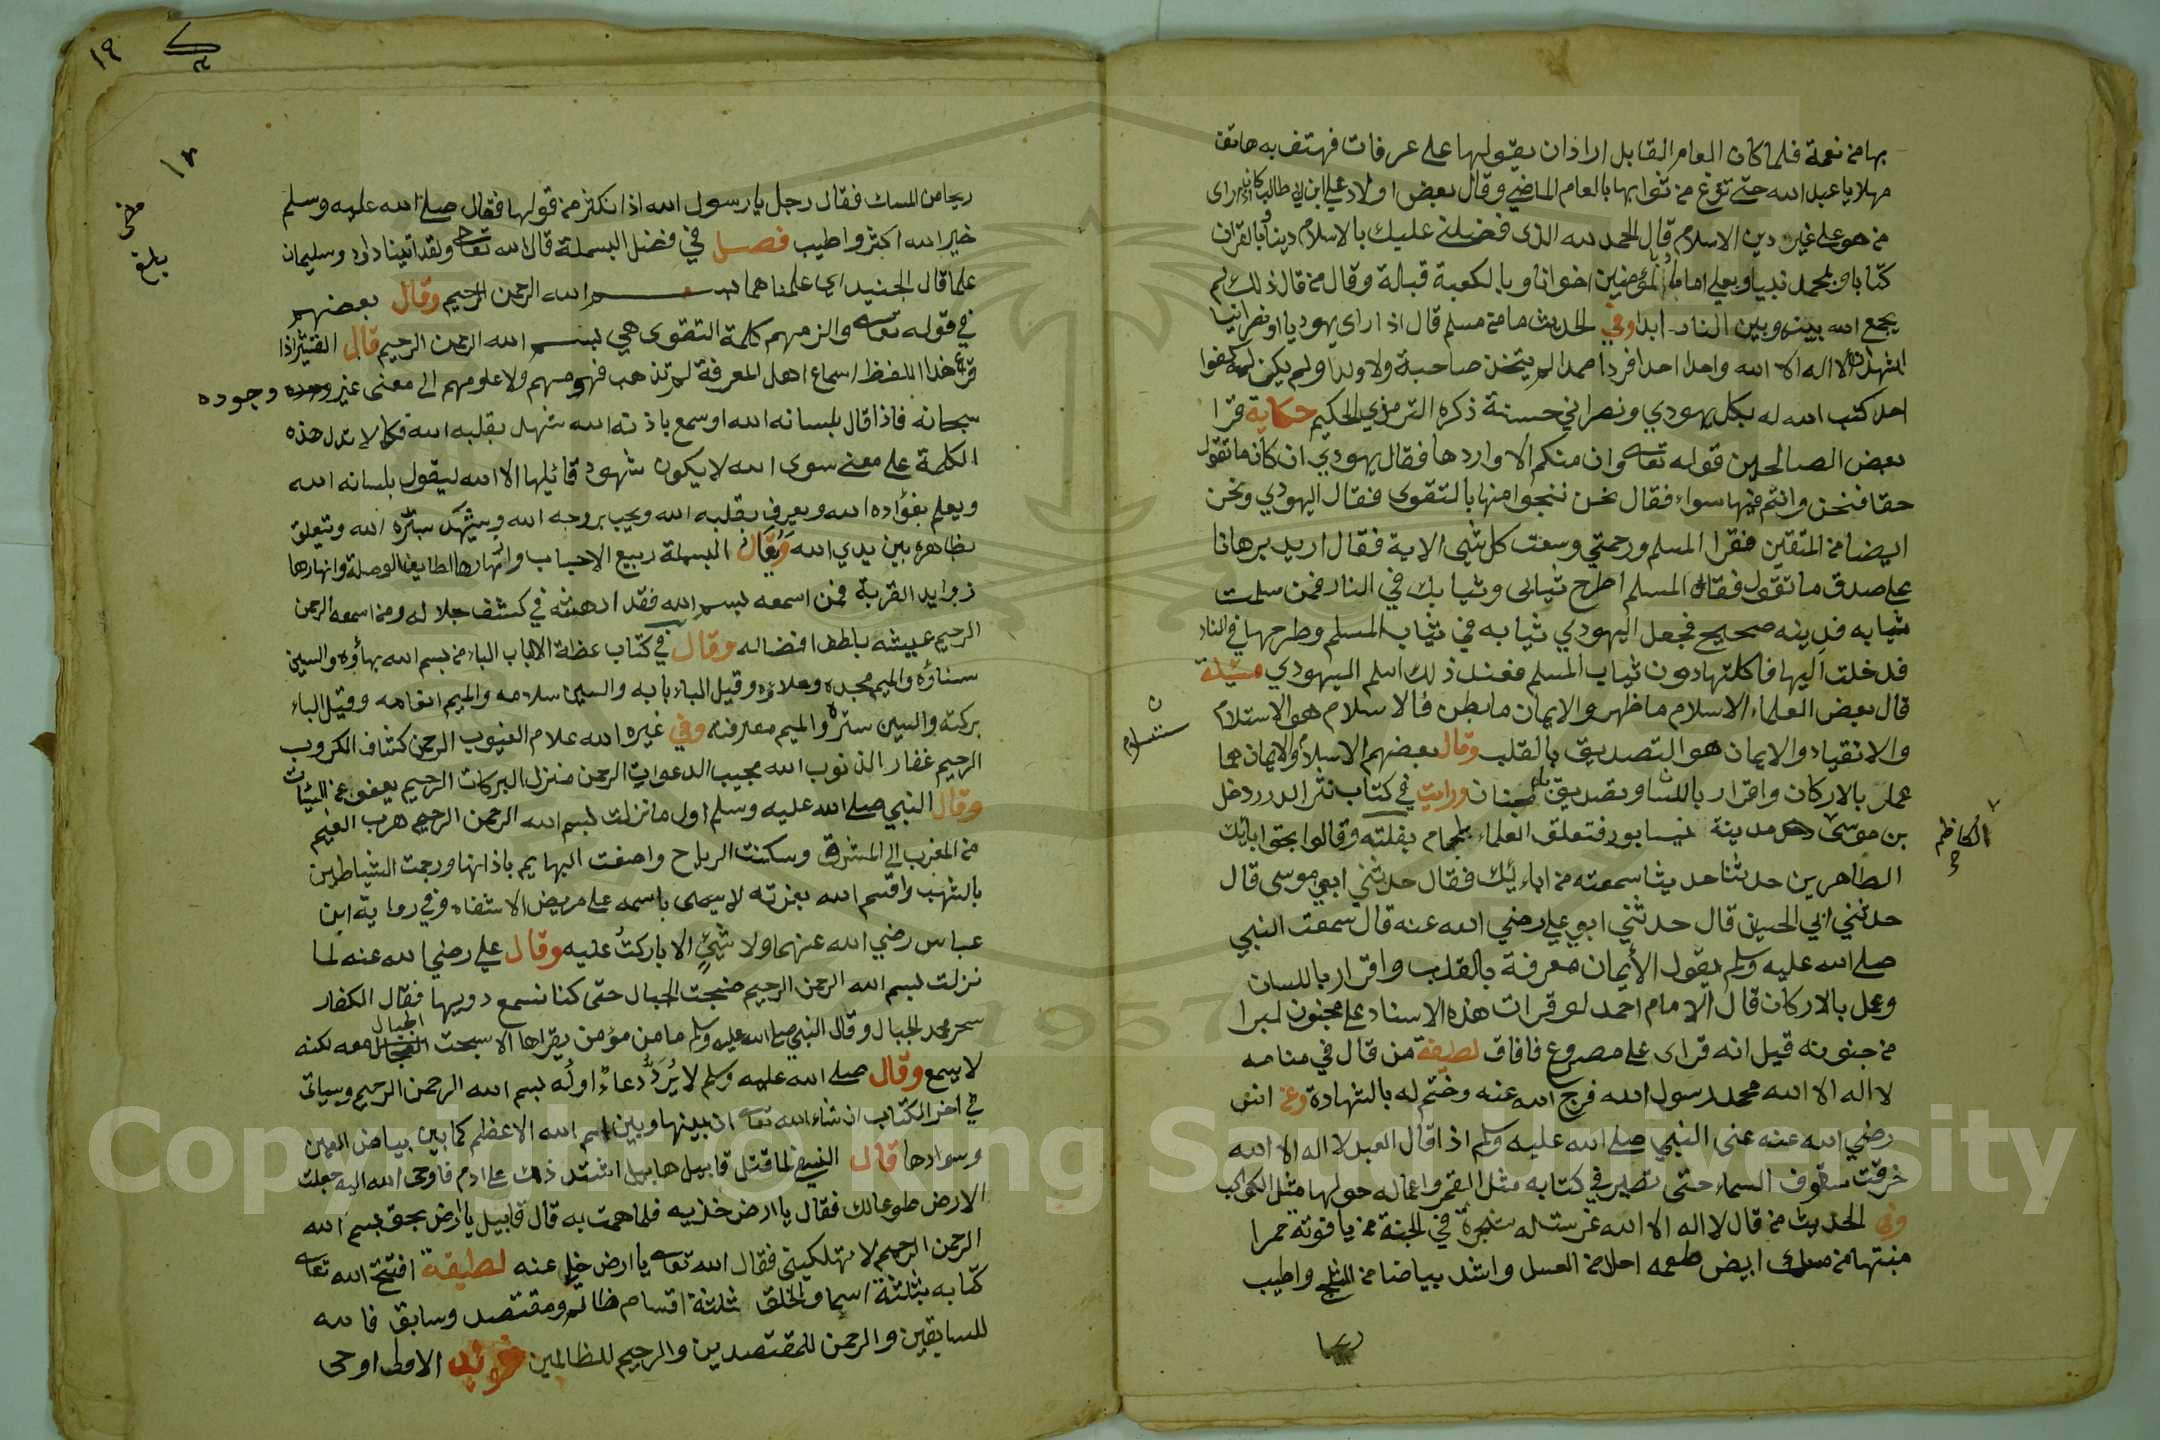 بها من نعمة فلما كان العام القابل اراد ان يقولها على عرفات فهتف به هاتف
مهلا يا عبد الله حتى تفرغ من ثوابها بالعام الماضي وقال بعض اولاد علي ابن ابي طالب كان اذا راى
من هو على غير دين الاسلام قال الحمد لله الذى فضلني عليك بالاسلام دينا وبالقران
كتابا وبمحمد نبيا وبعلي اماما وبالمؤمنين اخوانا وبالكعبة قبالة وقال من قال ذلك لم
يجمع الله بينه وبين النار ابدا وفي الحديث ما من مسلم قال اذا راى يهوديا او نصرانيا
اشهد ان لا اله الا الله واحدا احدا فردا صمدا لم يتخذ صاحبة ولا ولدا ولم يكن له كفوا
احد كتب الله له بكل يهودي ونصراني حسنة ذكره الترمذي الحكيم حكاية قرا
بعض الصالحين قوله تعا وان منكم الا واردها فقال يهودي ان كان ما تقول
حقا فنحن وانتم فيها سواء فقال نحن ننجوا منها بالتقوى فقال اليهودي ونحن
ايضا من المتقين فقرا المسلم ورحمتي وسعت كل شى الاية فقال اريد برهانا
على صدق ما تقول فقال المسلم اطرح ثيابى وثيابك في النار فمن سلمت
ثيابه فدينه صحيح فجعل اليهودي ثيابه في ثياب المسلم وطرحها في النار
فدخلت اليها فاكلتها دون ثياب المسلم فعند ذلك اسلم اليهودي مسئلة
قال بعض العلماء الاسلام ما ظهر والايمان ما بطن فالاسلام هو الاستلام
والانقياد والايمان هو التصديق بالقلب وقال بعضهم الاسلام والايمان هما
عمل بالاركان واقرار باللسان وتصديق بالجنان ورايت في كتاب نثر الدرر دخل
بن موسى مدينة نيسابور فتعلق العلماء بلجام بغلته وقالوا بحق ابائك
الكاظم
الطاهرين حدثنا حديثا سمعته من ابائيك فقال حدثني ابي موسى قال
حدثني ابي الحسين قال حدثني ابوي علي رضي الله عنه قال سمعت النبي
صلى الله عليه وسلم يقول الأيمان معرفة بالقلب واقرار باللسان
وعمل بالاركان قال الامام احمد لو قرات هذه الاسناد على مجنون لبرا
من جنونه قيل انه قراى على مصروع فافاق لطيفة من قال في منامه
لا اله الا الله محمد رسول الله فرج الله عنه وختم له بالشهادة وعن انس
رضي الله عنه عنى النبي صلى الله عليه وسلم اذا قال العبد لا اله الا الله
خرقت سقوف السماء حتى تصير في كتابه مثل القمر واعماله حولها مثل الكواكب
وفي الحديث من قال لا اله الا الله غرست له شجرة في الجنة من ياقوتة حمرا
منبتها من مسك ابيض طعمه احلا من العسل واشد بياضا من الثلج واطيب
ريحا
١٩
١٢
بلغ
ريحا من المسك فقال رجل يا رسول الله اذا نكثر من قولها فقال صلى الله عليه وسلم
خير الله اكثر واطيب فصل في فضل البسملة قال الله تعا ولقد اتينا داود وسليمان
علما قال الجنيد اي علمناهما بسم الله الرحمن الرحيم وقال بعضهم
في قوله تعا والزمهم كلمة التقوى هي بسم الله الرحمن الرحيم قال القشيرى اذا
قرع هذا اللفظ اسماع اهل المعرفة لم تذهب فهومهم ولا علومهم الى معنى غير وجوده
سبحانه فاذا قال بلسانه الله او سمع باذنه الله شهد بقلبه الله فكما لا تدل هذه
الكلمة على معنى سوى الله لا يكون شهود قائيلها الا الله ليقول بلسانه الله
ويعلم بفؤاده الله ويعرف بقلبه الله ويحب بروحه الله ويشهد بسره الله ويتعلق
بظاهره بين يدي الله وقال البسملة ربيع الاحباب وانهارها الطايف الوصلة وانهارها
زوايد القربة فمن اسمعه بسم الله فقد ادهشه في كشف جلاله ومن اسمعه الرحمن
الرحيم عيشه بلطف افضاله وقال في كتاب عظة الالباب الباء من بسم الله بهاؤه والسين
سناؤه والميم مجده وعلاؤه وقيل الباء بابه والسين سلامه والميم انعامه وقيل الباء
بركته والسين ستره والميم معرفته وفي غيره الله علام الغيوب الرحمن كشاف الكروب
الرحيم غفار الذنوب الله مجيب الدعوات الرحمن منزل البركات الرحيم يعفو عن السيئات
وقال النبي صلى الله عليه وسلم اول ما نزلت بسم الله الرحمن الرحيم هرب الغيم
من المغرب الى المشرق وسكنت الرياح واصغت البهايم باذانها ورجمت الشياطين
بالشهب واقسم الله بعزته لا يسمى باسمه على مريض الا شفاه وفي رواية ابن
عباس رضي الله عنهما ولا شئ الا باركت عليه وقال علي رضي الله عنه لما
نزلت بسم الله الرحمن الرحيم ضجت الجبال حتى كنا نسمع دويها فقال الكفار
سحر محمد الجبال وقال النبي صلى الله عليه وسلم ما من مؤمن يقراها الا سبحت الجبال معه لكنه
لا يسمع وقال صلى الله عليه وسلم لا يرد دعاء اوله بسم الله الرحمن الرحيم وسياتى
في اخر الكتاب ان شاء الله تعا ان بينها وبين اسم الله الاعظم كما بين بياض العين
وسوادها قال النسفي لما قتل قابيل هابيل اشتد ذلك على ادم فاوحى الله اليه جعلت
الارض طوعا لك فقال يا ارض خذيه فلما همت به قال قابيل يا ارض بحق بسم الله
الرحمن الرحيم لا تهلكيني فقال الله تعا يا ارض خلي عنه لطيفة افتتح الله تعا
كتابه بثلثة اسما والخلق ثلثة اقسام ظالم ومقتصد وسابق فالله
للسابقين والرحمن للمقتصدين والرحيم للظالمين فوائد الاولى اوحى
Copyright © King Saud University
1957